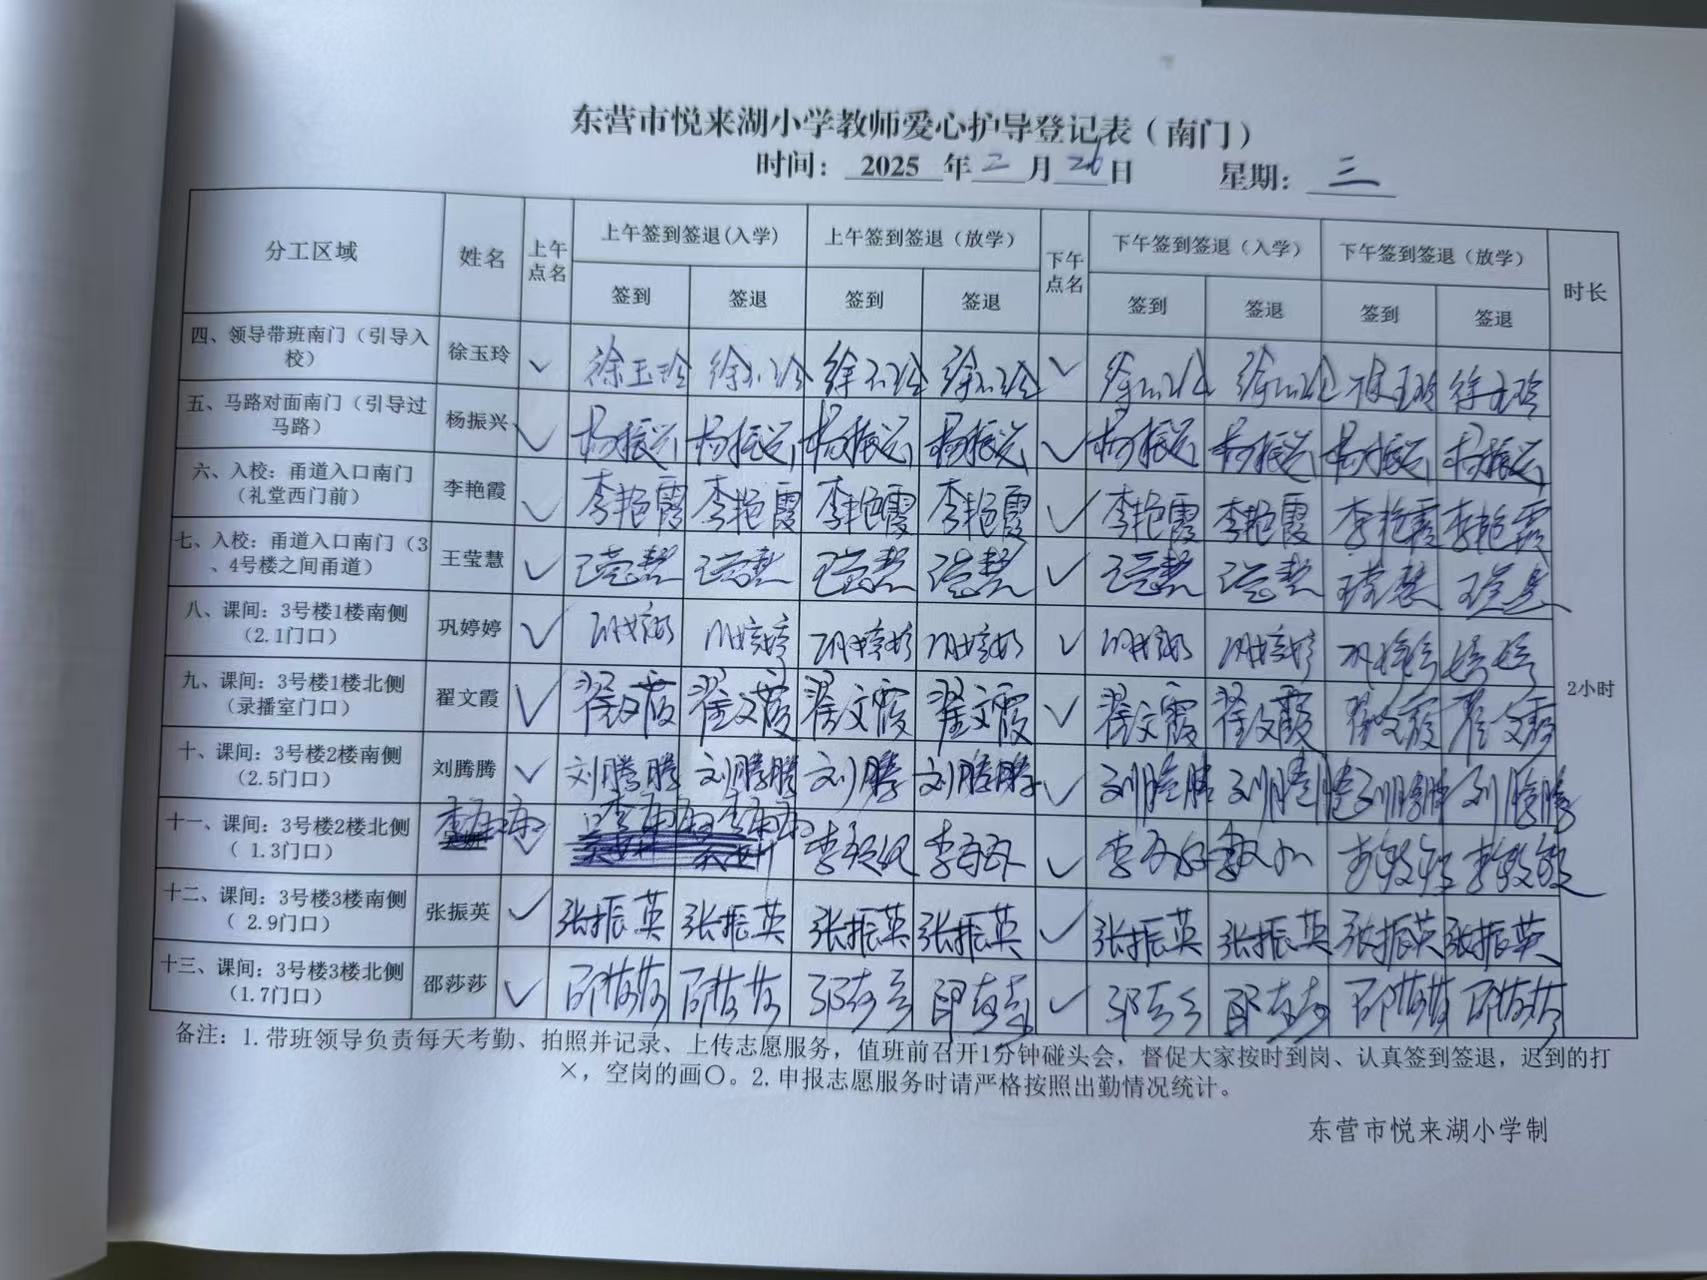 东营市悦来湖小学教师爱心护导登记表（南门）
时间： 2025 年 二 月 26 日 星期： 三
分工区域 姓名 上午点名 上午签到签退(入学) 上午签到签退（放学） 下午点名 下午签到签退（入学） 下午签到签退（放学） 时长
签到 签退 签到 签退 签到 签退 签到 签退
四、领导带班南门（引导入校） 徐玉玲 ✓ 徐玉玲 徐玉玲 徐玉玲 徐玉玲 ✓ 徐玉玲 徐玉玲 徐玉玲 徐玉玲
五、马路对面南门（引导过马路） 杨振兴 ✓ 杨振兴 杨振兴 杨振兴 杨振兴 ✓ 杨振兴 杨振兴 杨振兴 杨振兴
六、入校：甬道入口南门（礼堂西门前） 李艳霞 ✓ 李艳霞 李艳霞 李艳霞 李艳霞 ✓ 李艳霞 李艳霞 李艳霞 李艳霞
七、入校：甬道入口南门（3、4号楼之间甬道） 王莹慧 ✓ 王莹慧 王莹慧 王莹慧 王莹慧 ✓ 王莹慧 王莹慧 王莹慧 王莹慧
八、课间：3号楼1楼南侧（2.1门口） 巩婷婷 ✓ 巩婷婷 巩婷婷 巩婷婷 巩婷婷 ✓ 巩婷婷 巩婷婷 巩婷婷 婷婷
九、课间：3号楼1楼北侧（录播室门口） 翟文霞 ✓ 翟文霞 翟文霞 翟文霞 翟文霞 ✓ 翟文霞 翟文霞 翟文霞 翟文霞
十、课间：3号楼2楼南侧（2.5门口） 刘腾腾 ✓ 刘腾腾 刘腾腾 刘腾 刘腾腾 ✓ 刘腾腾 刘腾腾 刘腾腾 刘腾腾
十一、课间：3号楼2楼北侧（ 1.3门口） 李 ✓ 李 李 李 李 ✓ 李 李 李 李
十二、课间：3号楼3楼南侧（ 2.9门口） 张振英 ✓ 张振英 张振英 张振英 张振英 ✓ 张振英 张振英 张振英 张振英
十三、课间：3号楼3楼北侧（1.7门口） 邵莎莎 ✓ 邵莎莎 邵莎莎 邵莎莎 邵莎莎 ✓ 邵莎莎 邵莎莎 邵莎莎 邵莎莎
2小时
备注：1.带班领导负责每天考勤、拍照并记录、上传志愿服务，值班前召开1分钟碰头会，督促大家按时到岗、认真签到签退，迟到的打
×，空岗的画〇。2.申报志愿服务时请严格按照出勤情况统计。
东营市悦来湖小学制